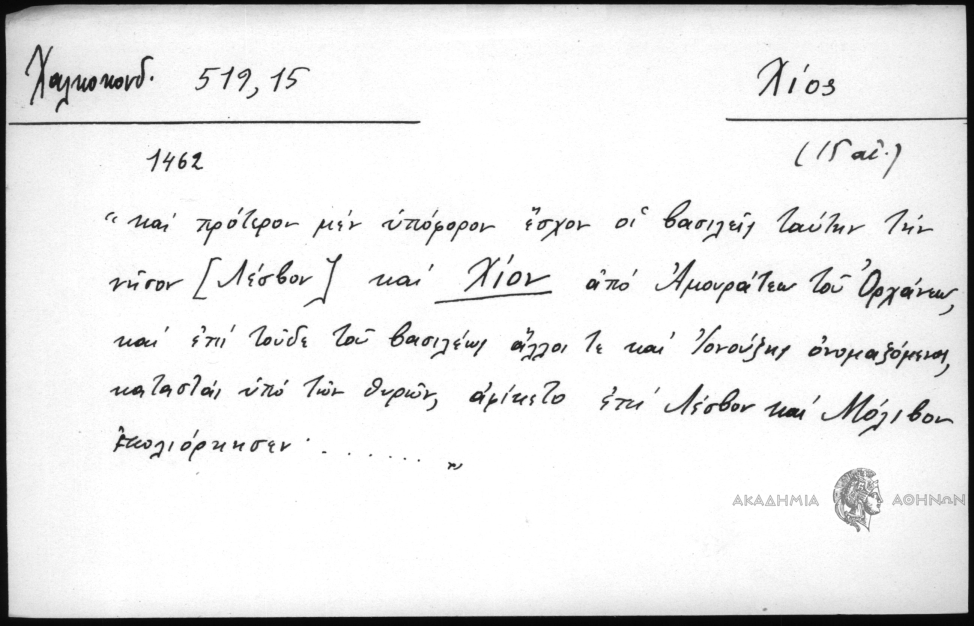 Χαλκοκονδ. 519,15
Χίος
1462
(15 αἰ.)
"καί πρότερον μέν ὑπόφορον ἔσχον οἱ βασιλεῖς ταύτην τήν
νῆσον [Λέσβον] καί Χίον ἀπό Ἀμουράτεω τοῦ Ὀρχάνεω,
καί ἐπί τοῦδε τοῦ βασιλέως ἄλλοι τε καί Ἰονούζης ὀνομαζόμενος,
καταστάς ὑπό τῶν θυρῶν, ἀφίκετο ἐπί Λέσβον καί Μόλιβον
ἐπολιόρκησεν· . . . . . . "
ΑΚΑΔΗΜΙΑ ΑΘΗΝΩΝ